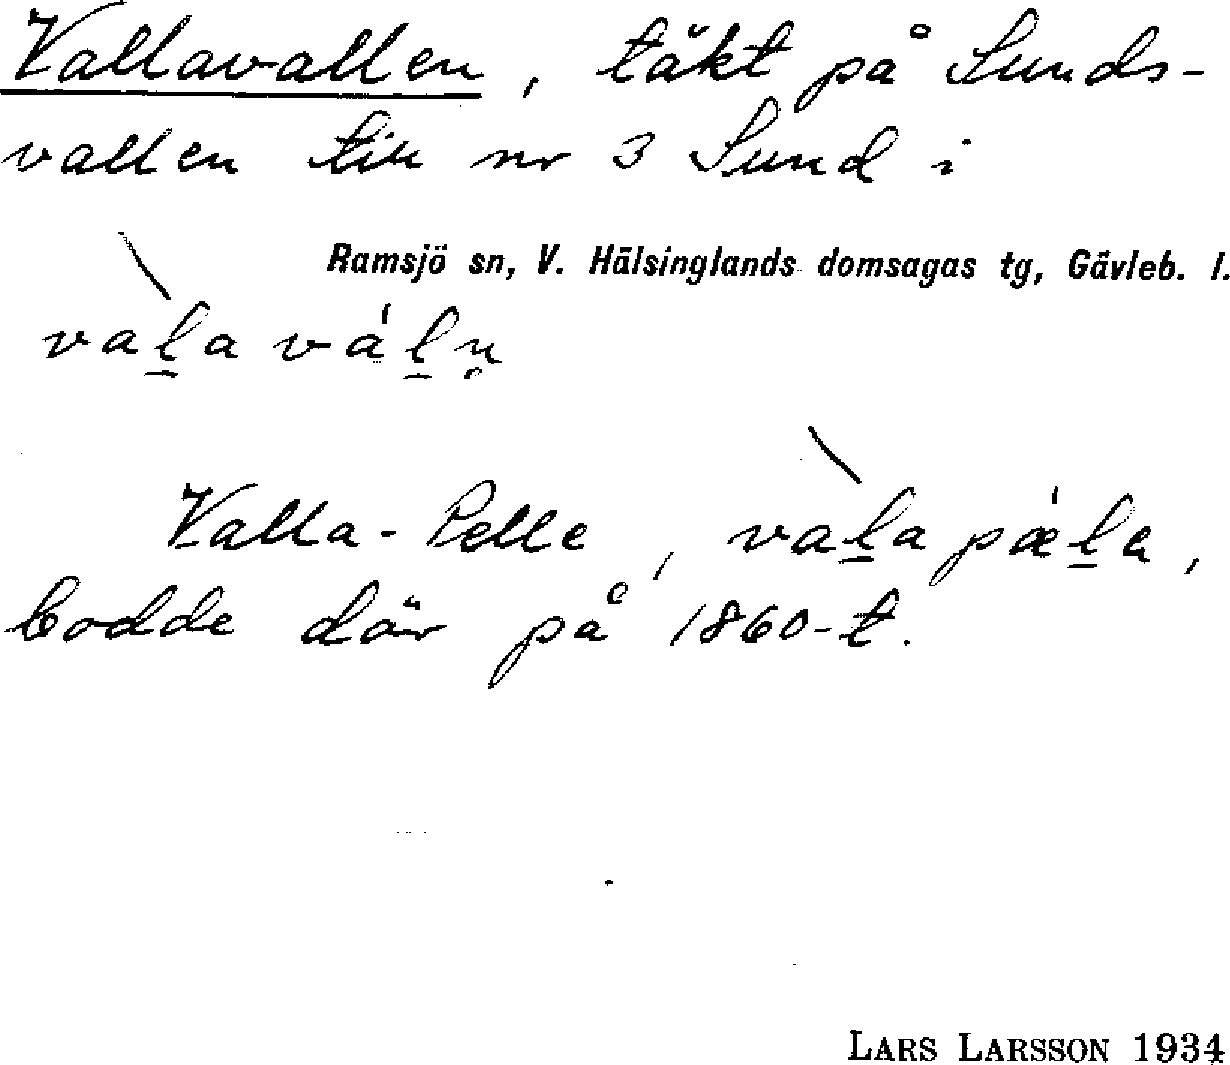 Vallavallen, täkt på Sunds-
vallen till nr 3 Sund i
Ramsjö sn, V. Hälsinglands domsagas tg, Gävleb. l.
val̠a vál̠n̥
Valla-Pelle, val̠a pǽl̠a,
bodde där på 1860-t.
LARS LARSSON 1934